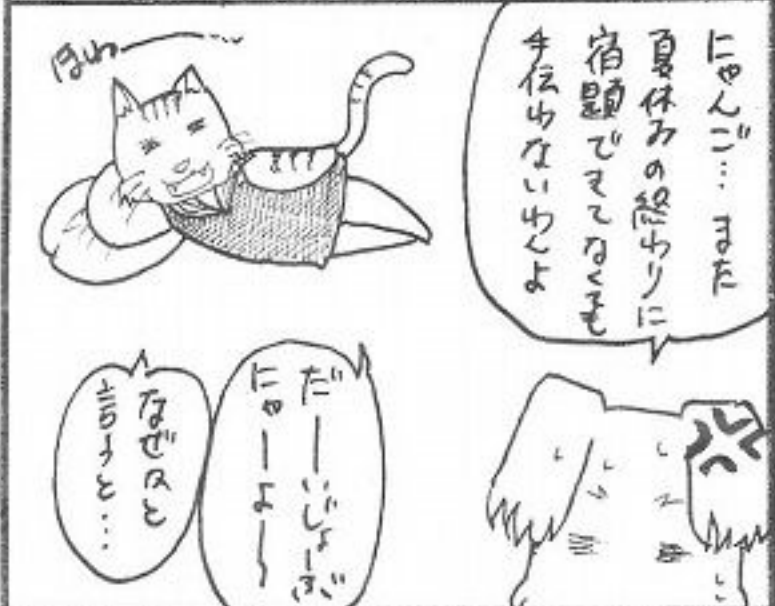 にゃんご…また
夏休みの終わりに
宿題できてなくても
手伝わないわんよ
ほわーー…
だーいじょーぶ
にゃーよー〜
なぜなと
言うと…